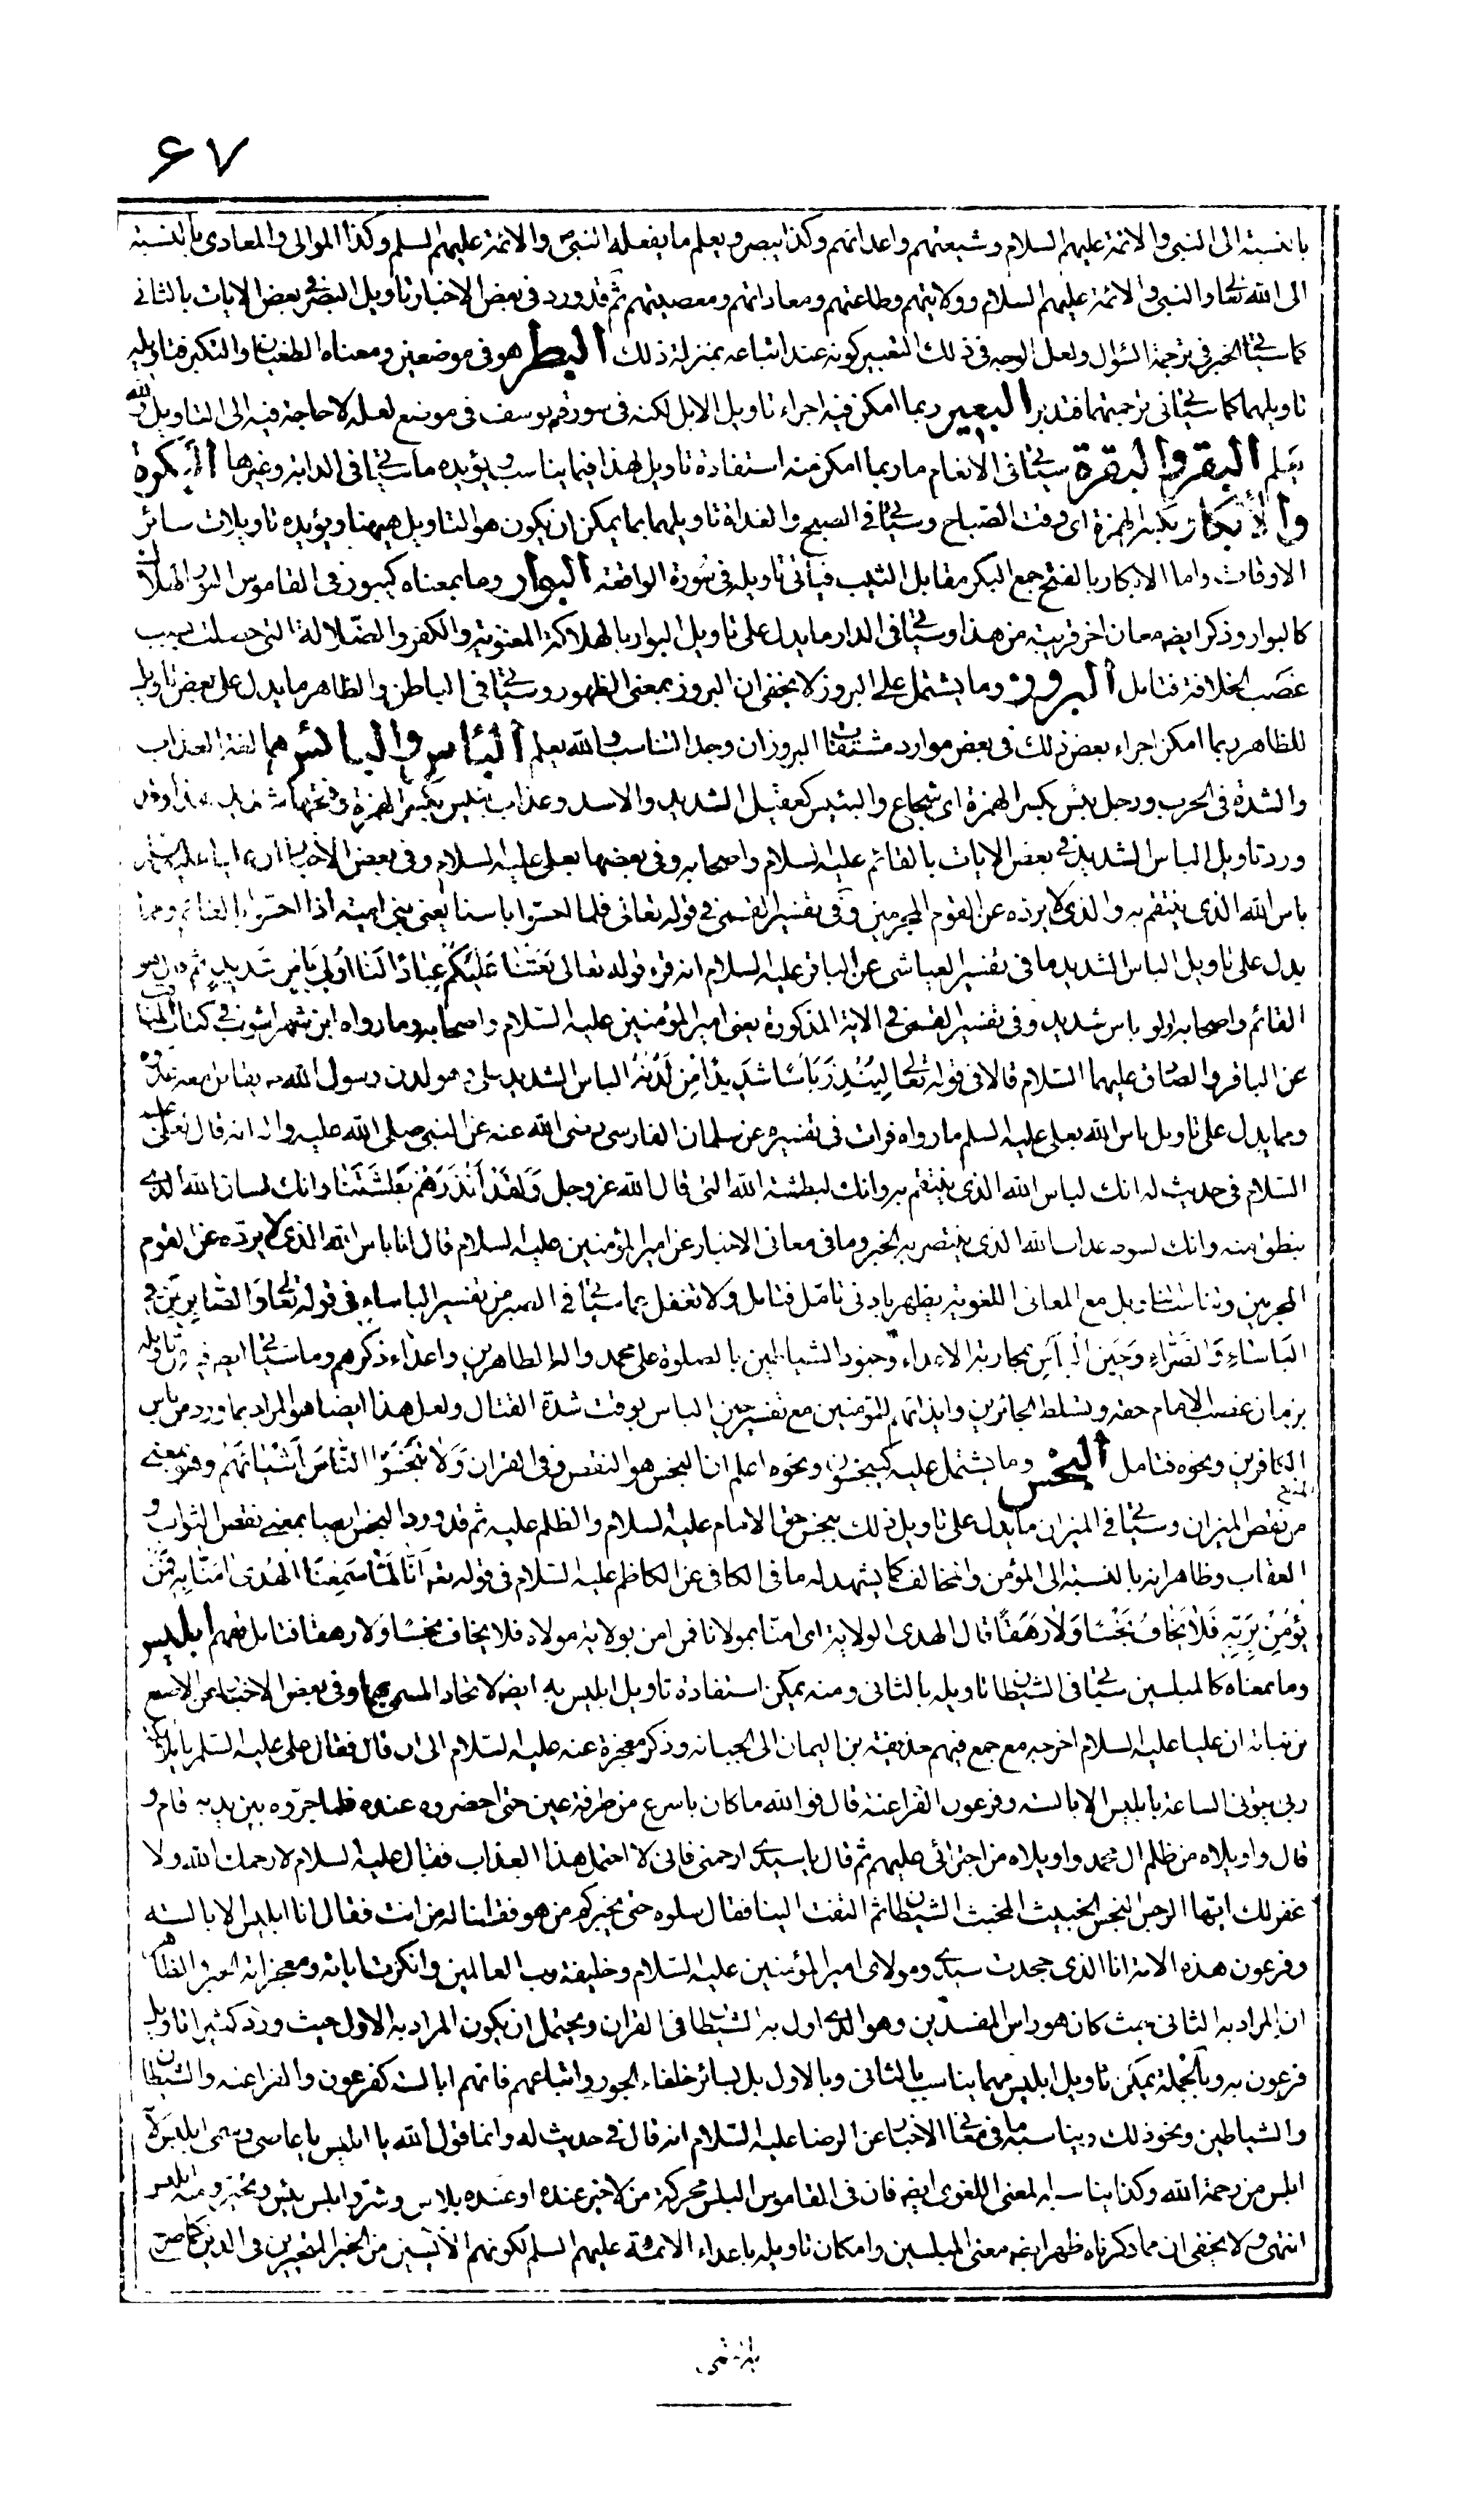 ۶۷
بالنسبة الى النبى والائمة عليهم السلام وشيعتهم واعدائهم وكذا يبصر ويعلم ما يفعله النبى ص والائمة عليهم السلم وكذا الموالى والمعادى بالنسبة
الى الله تعا والنبى والائمة عليهم السلام وولايتهم وطاعتهم ومعاداتهم ومعصيتهم ثم قد ورد فى بعض الاخبار تاويل البصر فى بعض الايات بالثانى
كما سياتى الخبر فى ترجمة السؤال ولعل الوجه فى ذلك التعبير كونه عند اتباعه بمنزلة ذلك البطر هو فى موضعين ومعناه الطغيان والتكبر فتاويله
تاويلهما كما سياتى فى ترجمتهما فتدبر البعير ربما امكن فيه اجراء تاويل الابل لكنه فى سورة يوسف فى موضع لعله لا حاجة فيه الى التاويل والله
يعلم البقر والبقرة سياتى فى الانعام ما ربما امكن منه استفادة تاويل لهذا فيما يناسب ويؤيده ما سياتى فى الدابة وغيرها البكرة
والابكار بكسر الهمزة اى وقت الصباح وسياتى فى الصبح والغداة تاويلهما بما يمكن ان يكون هو التاويل هيهنا ويؤيده تاويلات سائر
الاوقات واما الابكار بالفتح جمع البكر مقابل الثيب فياتى تاويله فى سورة الواقعة البوار وما بمعناه كيبور فى القاموس البور الهلاك
كالبوار وذكر ايضه معان اخر قريبة من هذا وسياتى فى الدار ما يدل على تاويل البوار بالهلاكة المعنوية والكفر والضلالة التى حصلت بسبب
غصب الخلافة فتامل البروز وما يشتمل على البروز لا يخفى ان البروز بمعنى الظهور وسياتى فى الباطن والظاهر ما يدل على بعض تاويل
للظاهر ربما امكن اجراء بعض ذلك فى بعض موارد مشتقات البروز ان وجد التناسب والله يعلم البأس والبائس هما لغة العذاب
والشدة فى الحرب ورجل بئس بكسر الهمزة اى شجاع والبئيس كفعيل الشديد والاسد وعذاب بئيس بكسر الهمزة وفتحها شديد هذا وقد
ورد تاويل الباس الشديد فى بعض الايات بالقائم عليه السلام واصحابه وفى بعضها بعلى عليه السلام وفى بعض الاخبار ان عليا عليه السلم
باس الله الذى ينتقم به والذى لا يرده عن القوم المجرمين وفى تفسير القمى فى قوله تعالى فلما احسوا باسنا يعنى بنى امية اذا احسوا بالقائم ومما
يدل على تاويل الباس الشديد ما فى تفسير العياشى عن الباقر عليه السلام انه قرء قوله تعالى بَعَثْنا عَلَيْكُمْ عِبادًا لَنا اُولي بَأْسٍ شَديدٍ ثم قال هو
القائم واصحابه اولو باس شديد وفى تفسير القمى فى الاية المذكورة يعنى امير المؤمنين عليه السلام واصحابه وما رواه ابن شهراشوب فى كتاب المناقب
عن الباقر والصادق عليهما السلام قالا فى قوله تعا لِيُنْذِرَ بَأْسًا شَديدًا مِنْ لَدُنْهُ الباس الشديد على وهو لدن رسول الله ص يقاتل معه عدوه
ومما يدل على تاويل باس الله بعلى عليه السلم ما رواه فرات فى تفسيره عن سلمان الفارسى رضى الله عنه عن النبى صلى الله عليه واله انه قال لعلى عليه
السلام فى حديث له انك لباس الله الذى ينتقم به وانك لبطشة الله التى قال الله عز وجل وَلَقَدْ اَنْذَرَهُمْ بَطْشَتَنا وانك لسان الله الذى
ينطق منه وانك لسوط عذاب الله الذى ينتصر به الخبر وما فى معانى الاخبار عن امير المؤمنين عليه السلام قال انا باس الله الذى لا يرده عن القوم
المجرمين وتناسب التاويل مع المعانى اللغوية يظهر بادنى تامل فتامل ولا تغفل عما سياتى فى الصبر من تفسير الباساء فى قوله تعا وَالصّابِرينَ فِي
الْبَأْساءِ وَالضَّرّاءِ وَحينَ الْبَأْسِ بمحاربة الاعداء وجنود الشياطين بالصلوة على محمد واله الطاهرين واعداء ذكرهم وما سياتى ايضه فيه من تاويله
بزمان غصب الامام حقه وتسلط الجائرين وايذائهم للمؤمنين مع تفسير حين الباس بوقت شدة القتال ولعل هذا ايضا هو المراد بما ورد من باس
الكافرين ونحوه فتامل البخس وما يشتمل عليه كيبخسون ونحوه اعلم ان البخس هو النقص وفى القران وَلا تَبْخَسُوا النّاسَ اَشْياءَهُمْ وهو بمعنى المنع
من نقص الميزان وسياتى فى الميزان ما يدل على تاويل ذلك ببخس حق الامام عليه السلام والظلم عليه ثم قد ورد البخس ايضا بمعنى نقص الثواب و
العقاب وظاهر انه بالنسبة الى المؤمن والمخالف كما يشهد له ما فى الكافى عن الكاظم عليه السلام فى قوله تعه اَنّا لَمّا سَمِعْنَا الْهُدى امَنّا بِهِ فَمَنْ
يُؤْمِنْ بِرَبِّهِ فَلا يَخافُ بَخْسًا وَلا رَهَقًا قال الهدى الولاية اى امنا بمولانا فمن امن بولاية مولاه فلا يخاف بخسًا ولا رهقا فتامل تفهم ابليس
وما بمعناه كالمبلسين سياتى فى الشيطان تاويله بالثانى ومنه يمكن استفادة تاويل ابليس به ايضه لاتحاد المسمى بهما وفى بعض الاخبار عن الاصبغ
بن نباتة ان عليا عليه السلام اخرجه مع جمع فيهم حذيفة بن اليمان الى الجبانة وذكر معجزة عنه عليه السلام الى ان قال فقال على عليه السلم يا ملائكة
ربى ايتونى الساعة بابليس الابالسة وفرعون الفراعنة قال فوالله ما كان باسرع من طرفة عين حتى احضروه عنده فلما جروه بين يديه قام و
قال واويلاه من ظلم ال محمد واويلاه من اجترائى عليهم ثم قال يا سيدى ارحمنى فانى لا احتمل هذا العذاب فقال عليه السلام لا رحمك الله ولا
غفر لك ايها الرجس النجس الخبيث المخبث الشيطان ثم التفت الينا فقال سلوه حتى يخبركم من هو فقلنا له من انت فقال انا ابليس الابالسة
وفرعون هذه الامة انا الذى جحدت سيدى ومولاى امير المؤمنين عليه السلام وخليفة رب العالمين وانكرت اياته ومعجزاته الخبر والظاهر
ان المراد به الثانى حيث كان هو راس المفسدين وهو الذى اول به الشيطان فى القران ويحتمل ان يكون المراد به الاول حيث ورد كثيرا تاويل
فرعون به وبالجملة يمكن تاويل ابليس مهما يناسب بالثانى وبالاول بل بسائر خلفاء الجور واتباعهم فانهم ابالسة كفرعون والفراعنه والشيطان
والشياطين ونحو ذلك ويناسبه ما فى معانى الاخبار عن الرضا عليه السلام انه قال فى حديث له وانما قول الله يا ابليس يا عاصى وسمى ابليس لانه
ابلس من رحمة الله وكذا يناسبه المعنى اللغوى ايضه فان فى القاموس البلس محركة من لا خير عنده او عنده بلاس وشر وابلس يئس وتحير ومنه ابليس
انتهى ولا يخفى ان مما ذكرناه ظهر ايضه معنى المبلسين وامكان تاويله باعداء الائمة عليهم السلم لكونهم الايسين من الخير المتحيرين فى الدين كما صرح